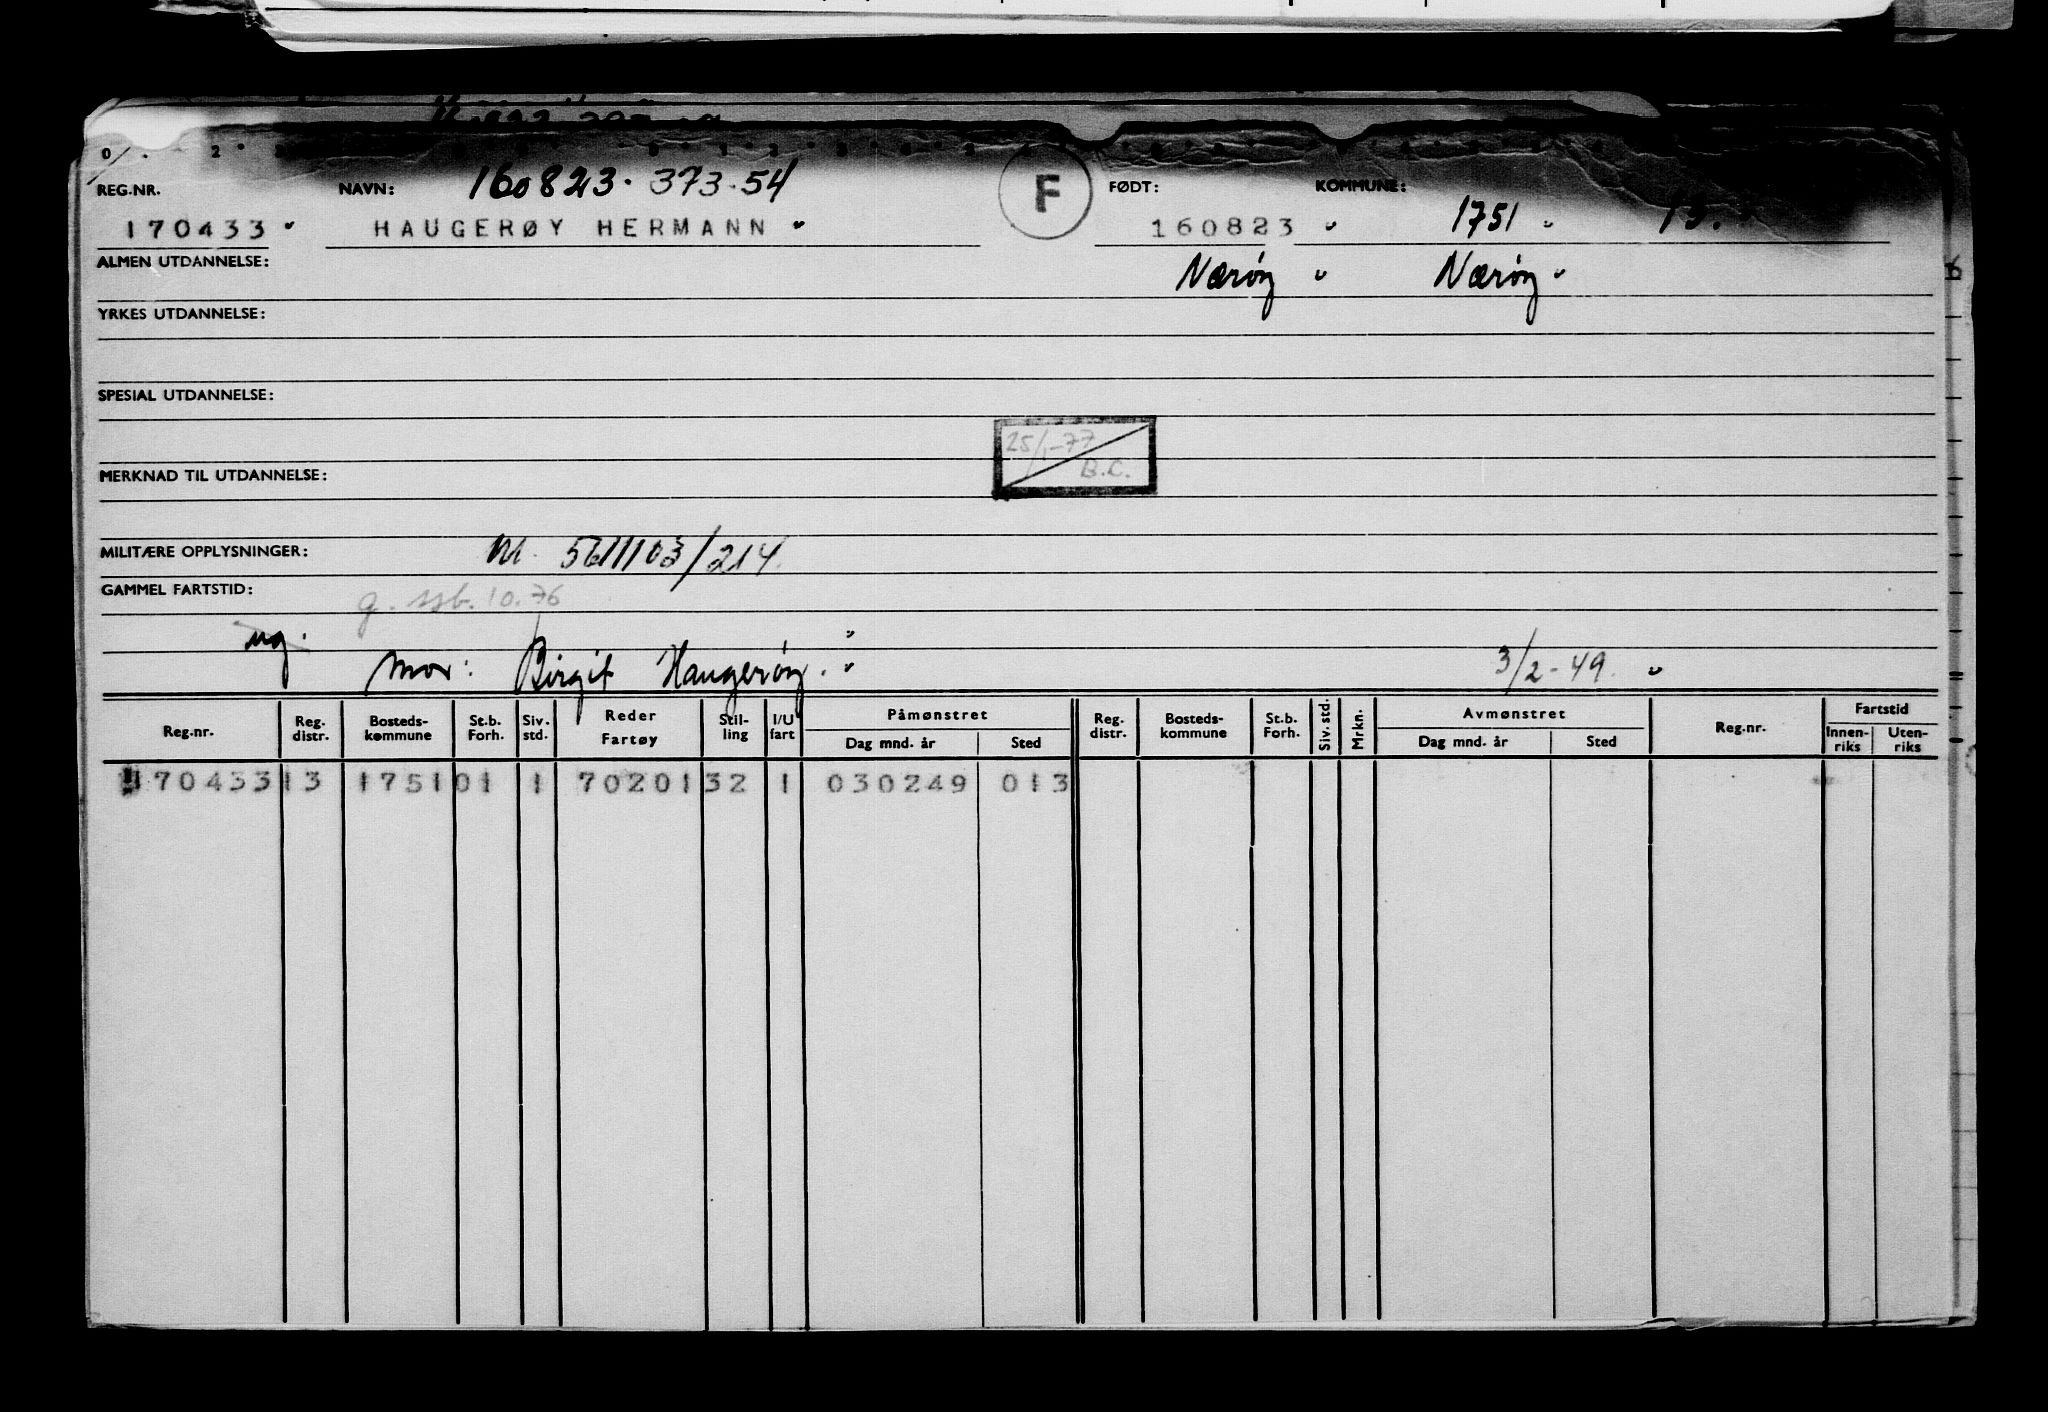 REG.NR. NAVN: 160823. 373.54 F FØDT: KOMMUNE:
170433 HAUGERØY HERMANN 160823 1751 13.
ALMEN UTDANNELSE: Nærøy Nærøy
YRKES UTDANNELSE:
SPESIAL UTDANNELSE:
25/1-77
B.C.
MERKNAD TIL UTDANNELSE:
MILITÆRE OPPLYSNINGER: 5611103/214
GAMMEL FARTSTID: 10.76
ug.
mor: Birgit Haugerøy. 3/2-49.
Reg.nr. Reg. distr. Bosteds-kommune St.b. Forh. Siv. std. Reder Fartøy Stil-ling I/U fart Påmønstret Dag mnd. år Sted Reg. distr. Bosteds-kommune St.b. Forh. Siv. std. Mrkn. Avmønstret Dag mnd. år Sted Reg.nr. Fartstid Innen-riks Uten-riks
170433 13 1751 01 1 70201 32 1 030249 013